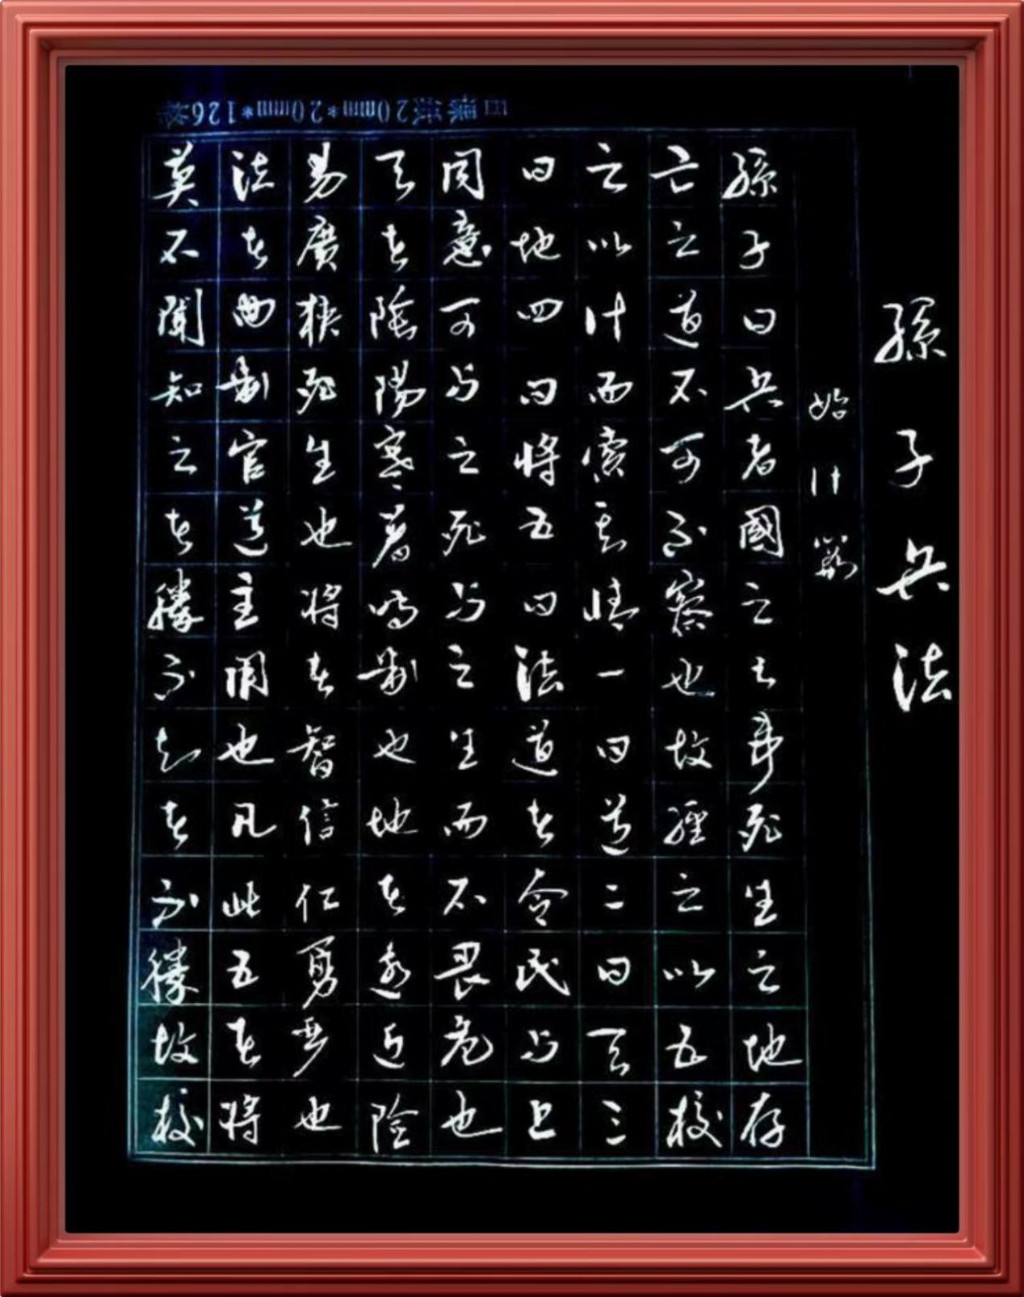 孫子兵法
始計篇
孫子曰兵者國之大事死生之地存
亡之道不可不察也故經之以五校
之以計而索其情一曰道二曰天三
曰地四曰將五曰法道者令民与上
同意可与之死与之生而不畏危也
天者陰陽寒暑時制也地者遠近險
易廣狹死生也將者智信仁勇嚴也
法者曲制官道主用也凡此五者將
莫不聞知之者勝不知者不勝故校
20mm*20mm*126格